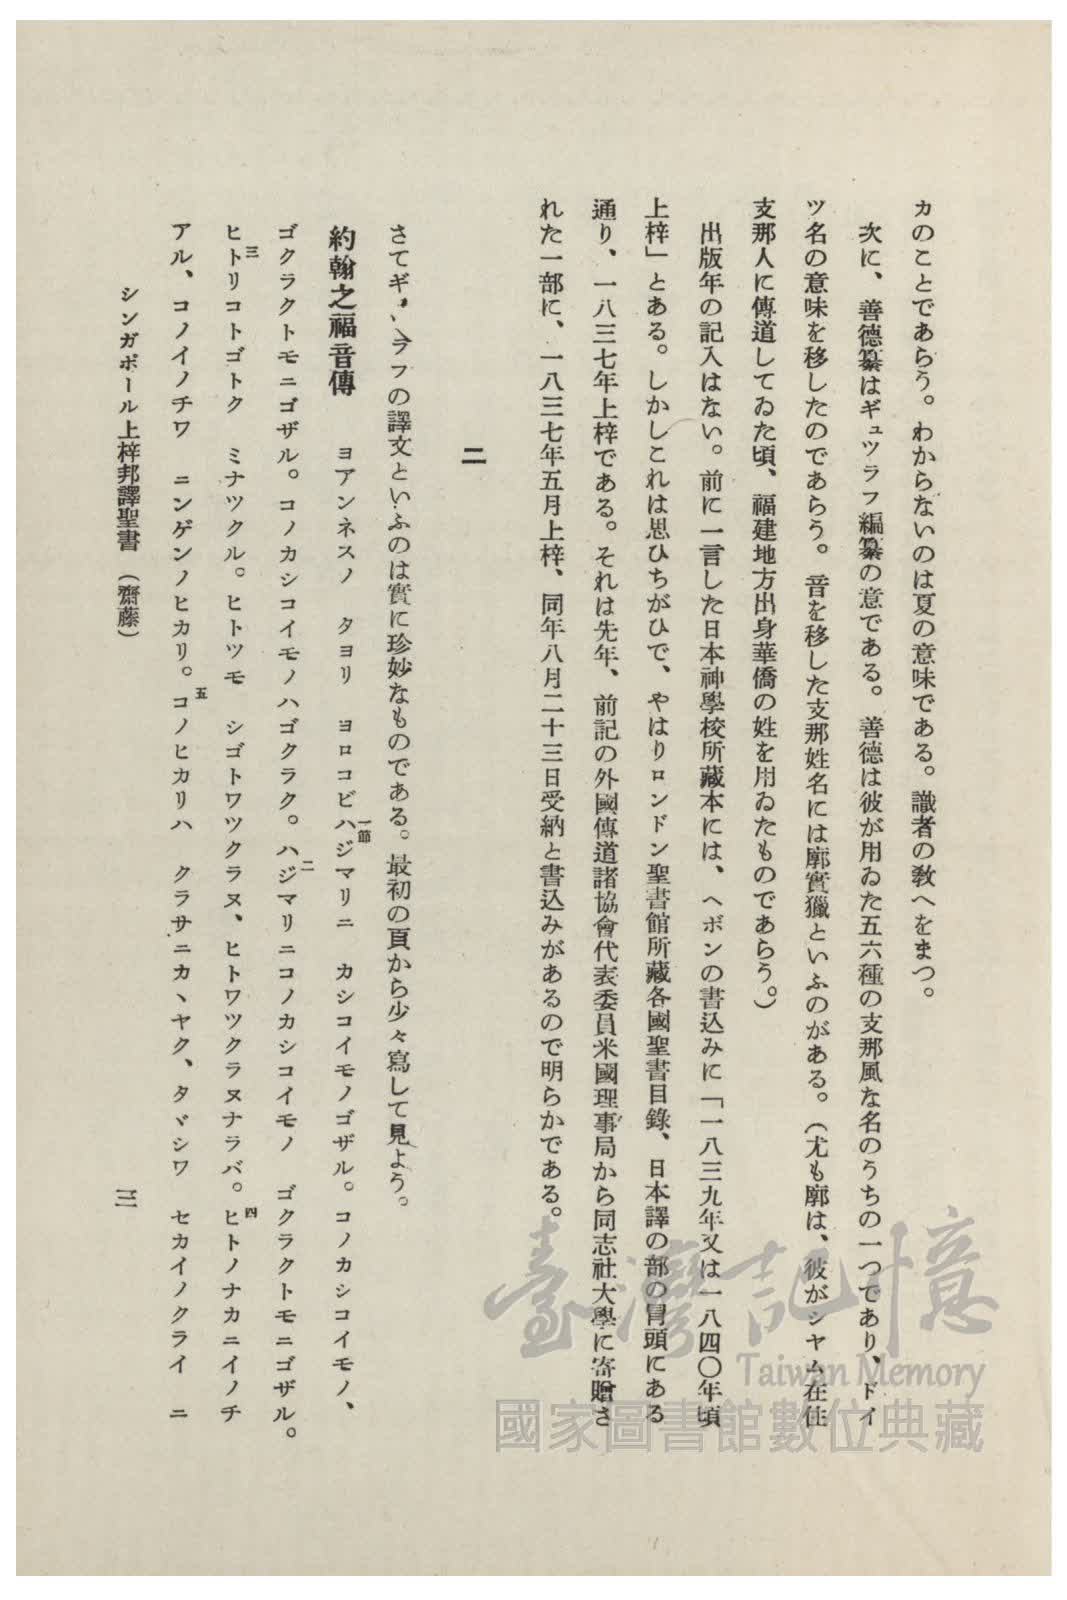 カのことであらう。わからないのは夏の意味である。識者の教へをまつ。
次に、善德纂はギュツラフ編纂の意である。善德は彼が用ゐた五六種の支那風な名のうちの一つであり、ドイ
ツ名の意味を移したのであらう。音を移した支那姓名には廓實獵といふのがある。（尤も廓は、彼がシャム在住
支那人に傳道してゐた頃、福建地方出身華僑の姓を用ゐたものであらう。）
出版年の記入はない。前に一言した日本神學校所藏本には、ヘボンの書込みに「一八三九年又は一八四〇年頃
上梓」とある。しかしこれは思ひちがひで、やはりロンドン聖書館所藏各國聖書目錄、日本譯の部の冐頭にある
通り、一八三七年上梓である。それは先年、前記の外國傳道諸協會代表委員米國理事局から同志社大學に寄贈さ
れた一部に、一八三七年五月上梓、同年八月二十三日受納と書込みがあるので明らかである。
二
さてギュツラフの譯文といふのは實に珍妙なものである。最初の頁から少々寫して見よう。
約翰之福音傳　ヨアンネスノ　タヨリ　ヨロコビ　一節ハジマリニ　カシコイモノゴザル。コノカシコイモノ、
ゴクラクトモニゴザル。コノカシコイモノハゴクラク。二ハジマリニコノカシコイモノ　ゴクラクトモニゴザル。
三ヒトリコトゴトク　ミナツクル。ヒトツモ　シゴトワツクラヌ、ヒトワツクラヌナラバ。四ヒトノナカニイノチ
アル、コノイノチワ　ニンゲンノヒカリ。五コノヒカリハ　クラサニカヽヤク、タヾシワ　セカイノクライ　ニ
シンガポール上梓邦譯聖書　（齋藤）
三
臺灣記憶
Taiwan Memory
國家圖書館數位典藏